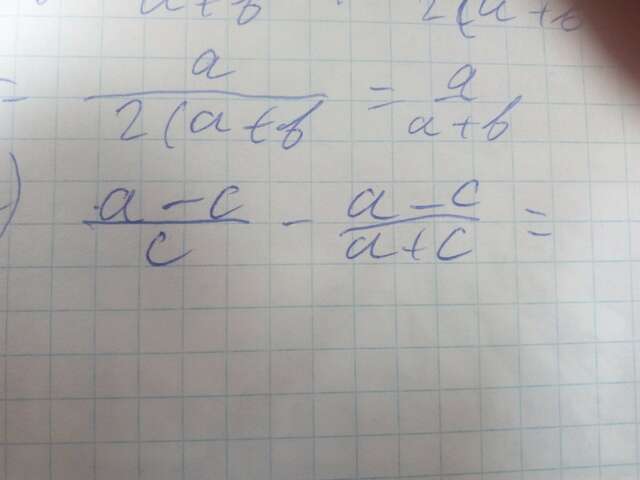 a+b 2(a+b
= a/2(a+b = a/a+b
) a-c/c - a-c/a+c =